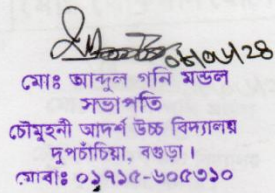 মোঃ আব্দুল গনি মন্ডল
সভাপতি
চৌমুহনী আদর্শ উচ্চ বিদ্যালয়
দুপচাঁচিয়া, বগুড়া।
মোবাঃ ০১৭১৫-৬০৫৩১০